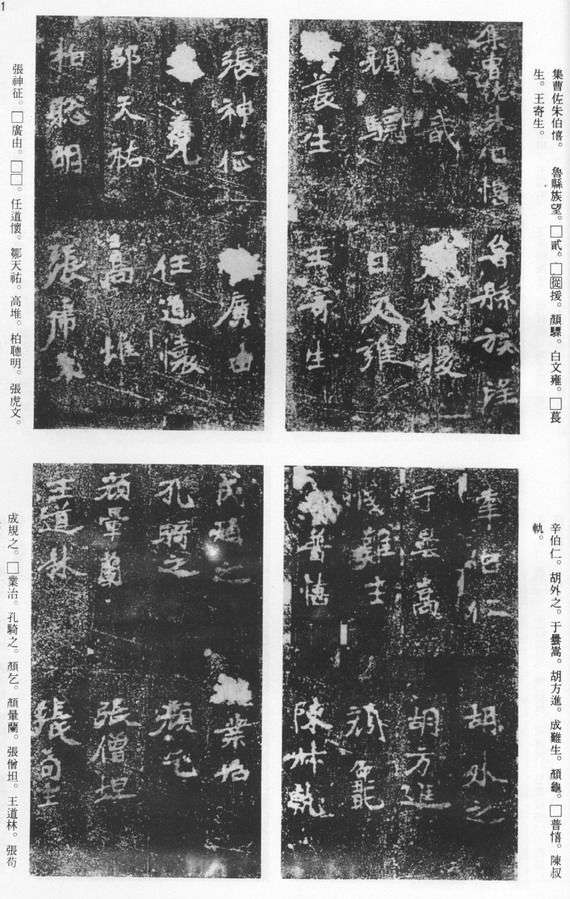 1
集曹佐朱伯憘。魯縣族望。□貳。□從援。顏驃。白文雍。□萇
生。王寄生。
集曹佐朱伯憘 魯縣族望
貳 從援
顏 白文雍
萇生 王寄生
張神征 廣由
任道懷
鄒天祐 高堆
柏聰明 張虎文
張神征。□廣由。□□。任道懷。鄒天祐。高堆。柏聰明。張虎文。
辛伯仁。胡外之。于曇嵩。胡方進。成難生。顏龜。□普憘。陳叔
軌。
辛伯仁 胡外之
于曇嵩 胡方進
成難生 顏龜
普憘 陳叔軌
成規之 業治
孔騎之 顏乞
顏暈蘭 張僧坦
王道林 張苟生
成規之。□業治。孔騎之。顏乞。顏暈蘭。張僧坦。王道林。張苟